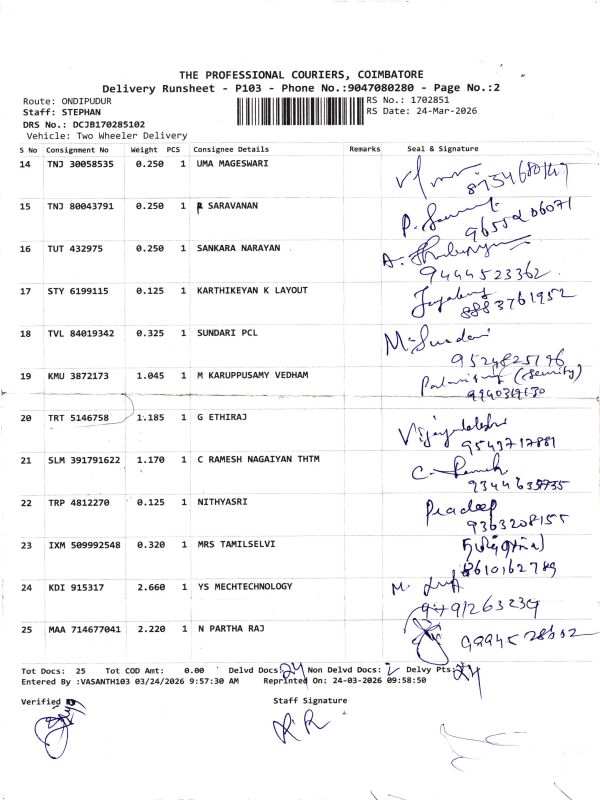 THE PROFESSIONAL COURIERS, COIMBATORE
Delivery Runsheet - P103 - Phone No.:9047080280 - Page No.:2
Route: ONDIPUDUR RS No.: 1702851
Staff: STEPHAN RS Date: 24-Mar-2026
DRS No.: DCJB170285102
Vehicle: Two Wheeler Delivery
S No Consignment No Weight PCS Consignee Details Remarks Seal & Signature
14 TNJ 30058535 0.250 1 UMA MAGESWARI
15 TNJ 80043791 0.250 1 R SARAVANAN
16 TUT 432975 0.250 1 SANKARA NARAYAN
9444523362
17 STY 6199115 0.125 1 KARTHIKEYAN K LAYOUT
8883761952
18 TVL 84019342 0.325 1 SUNDARI PCL
19 KMU 3872173 1.045 1 M KARUPPUSAMY VEDHAM
(Security)
20 TRT 5146758 1.185 1 G ETHIRAJ
21 SLM 391791622 1.170 1 C RAMESH NAGAIYAN THTM
22 TRP 4812270 0.125 1 NITHYASRI Pradeep
9363208155
23 IXM 509992548 0.320 1 MRS TAMILSELVI
8610162789
24 KDI 915317 2.660 1 YS MECHTECHNOLOGY
25 MAA 714677041 2.220 1 N PARTHA RAJ
Tot Docs: 25 Tot COD Amt: 0.00 Delvd Docs: 24 Non Delvd Docs: Delvy Pts: 24
Entered By :VASANTH103 03/24/2026 9:57:30 AM Reprinted On: 24-03-2026 09:58:50
Verified Staff Signature